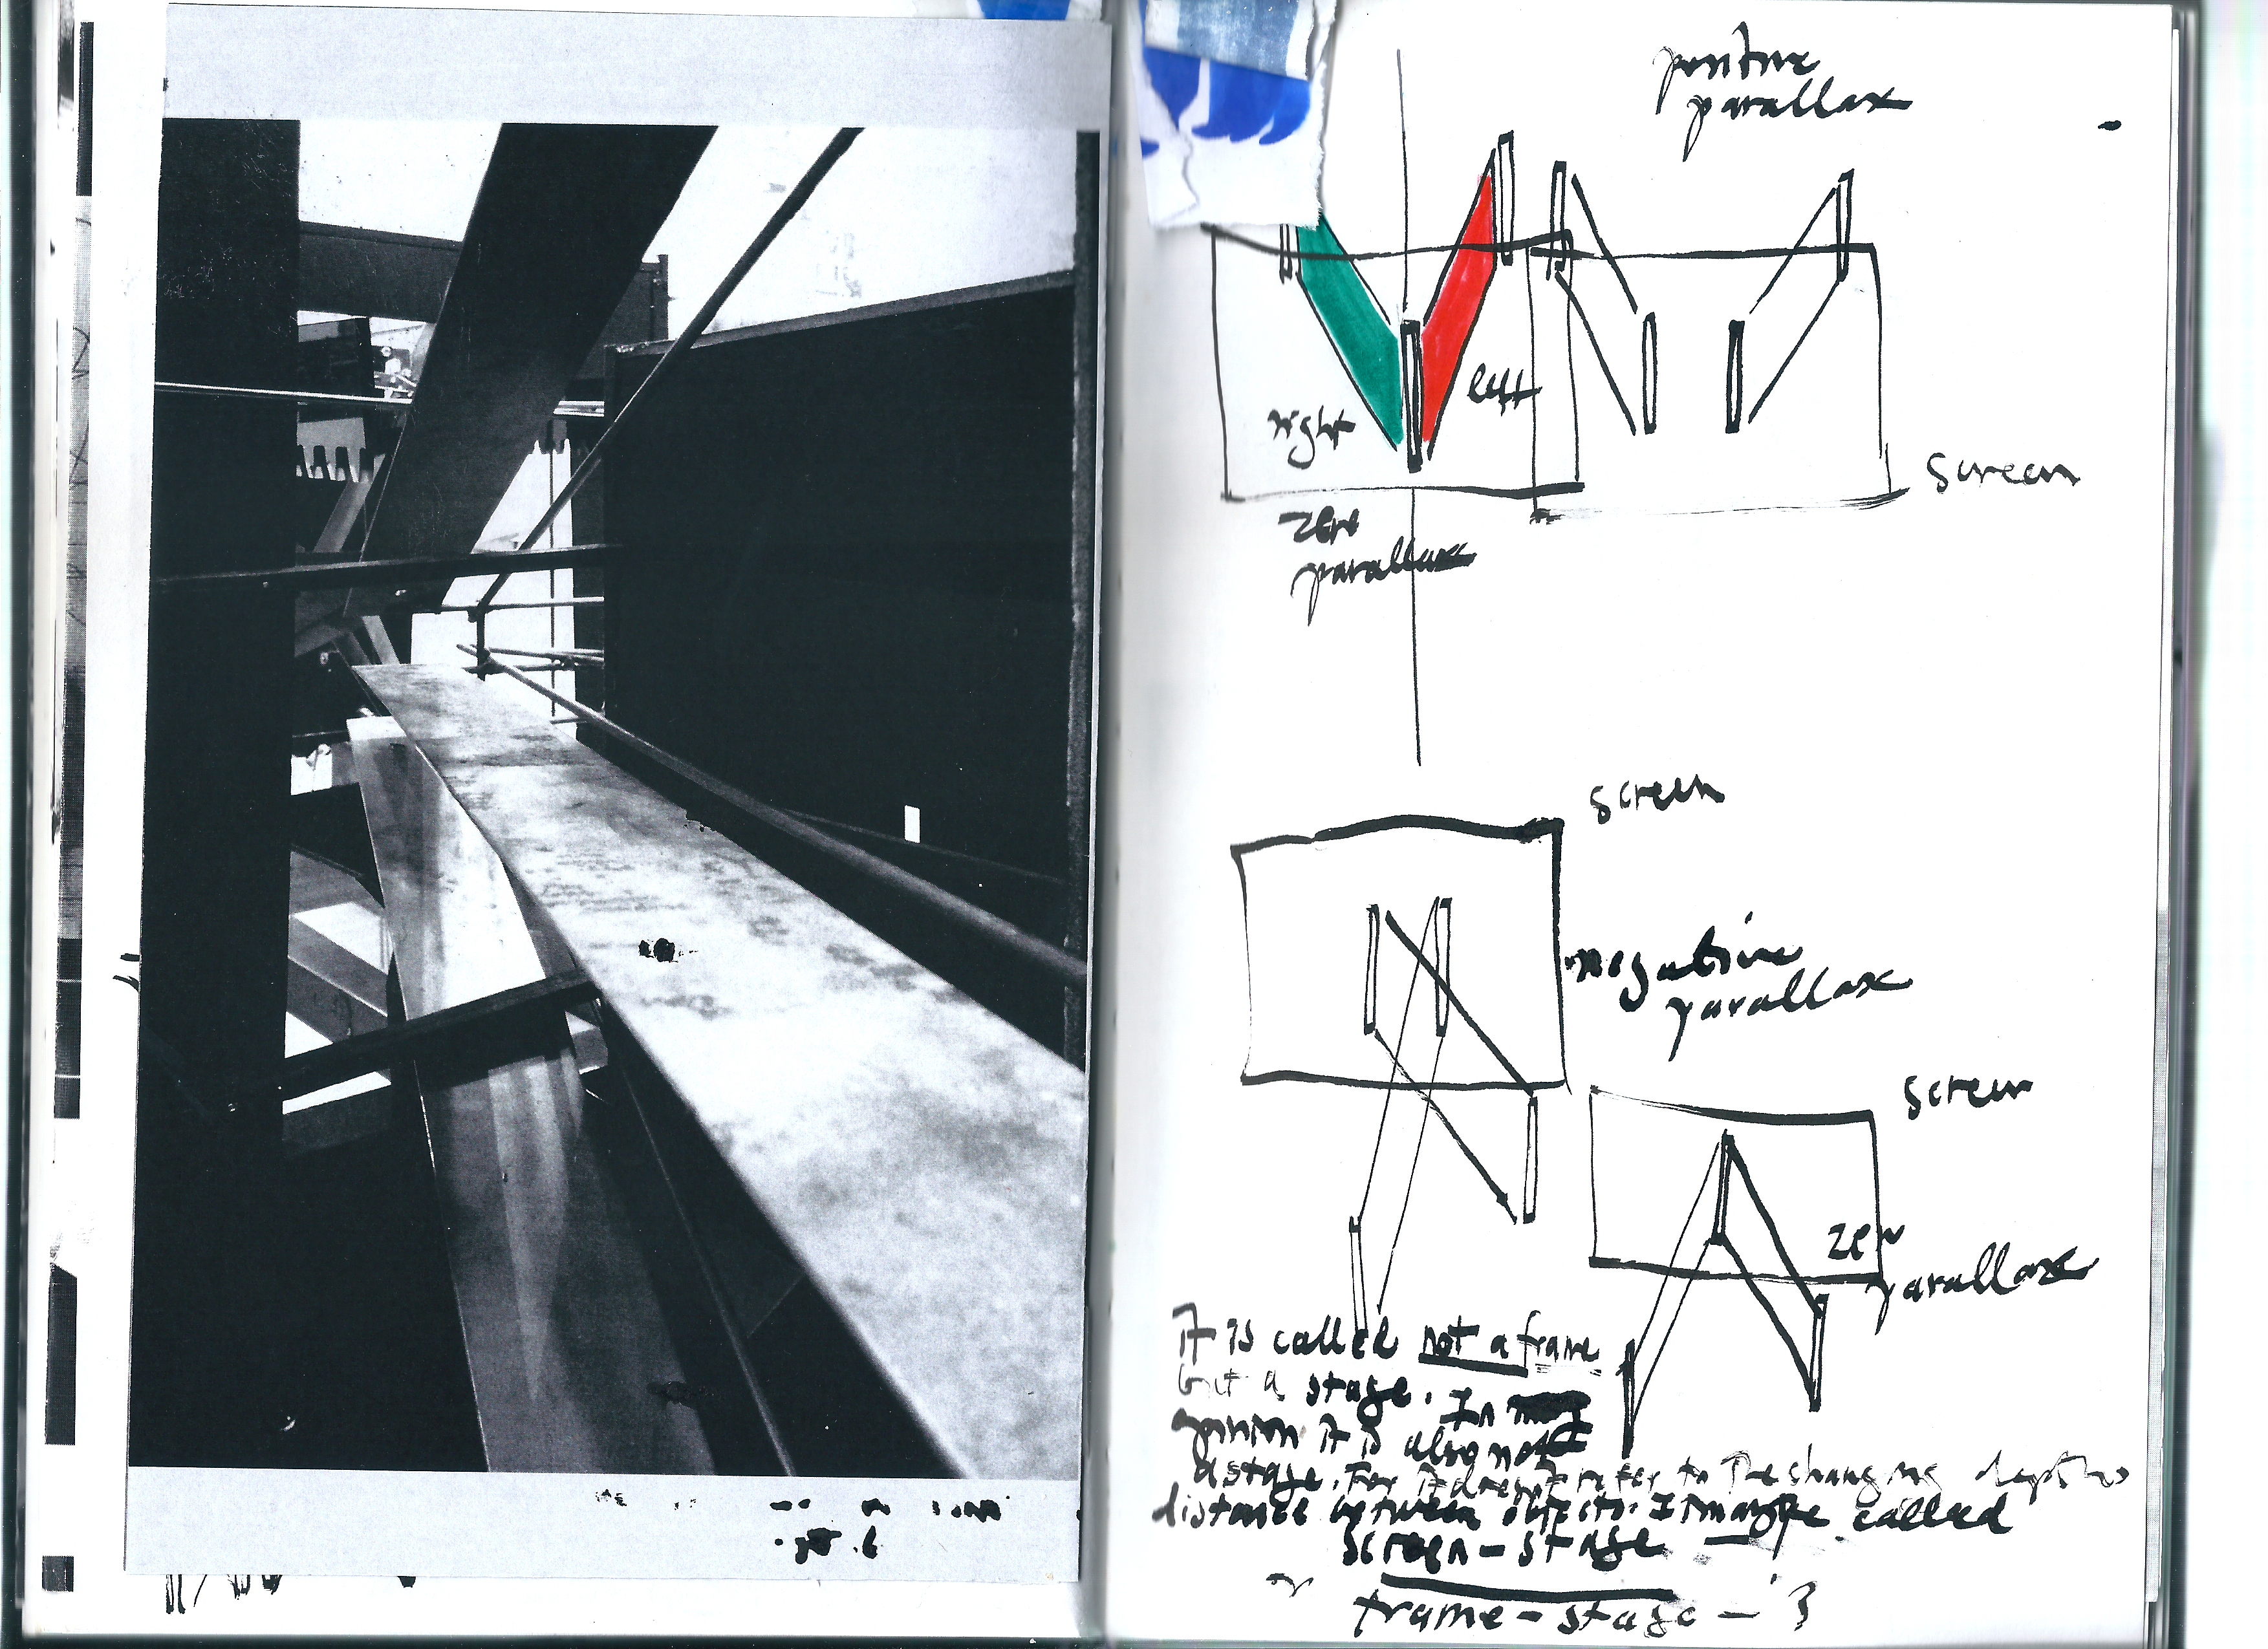 positive
parallax
left
right
screen
zero
parallax
screen
negative
parallax
screen
zero
parallax
It is called not a frame
but a stage. In my
opinion it is also not
a stage. For it doesn't refer to the changing depths
distance between objects. It maybe called
screen-stage –
or
frame-stage – ?